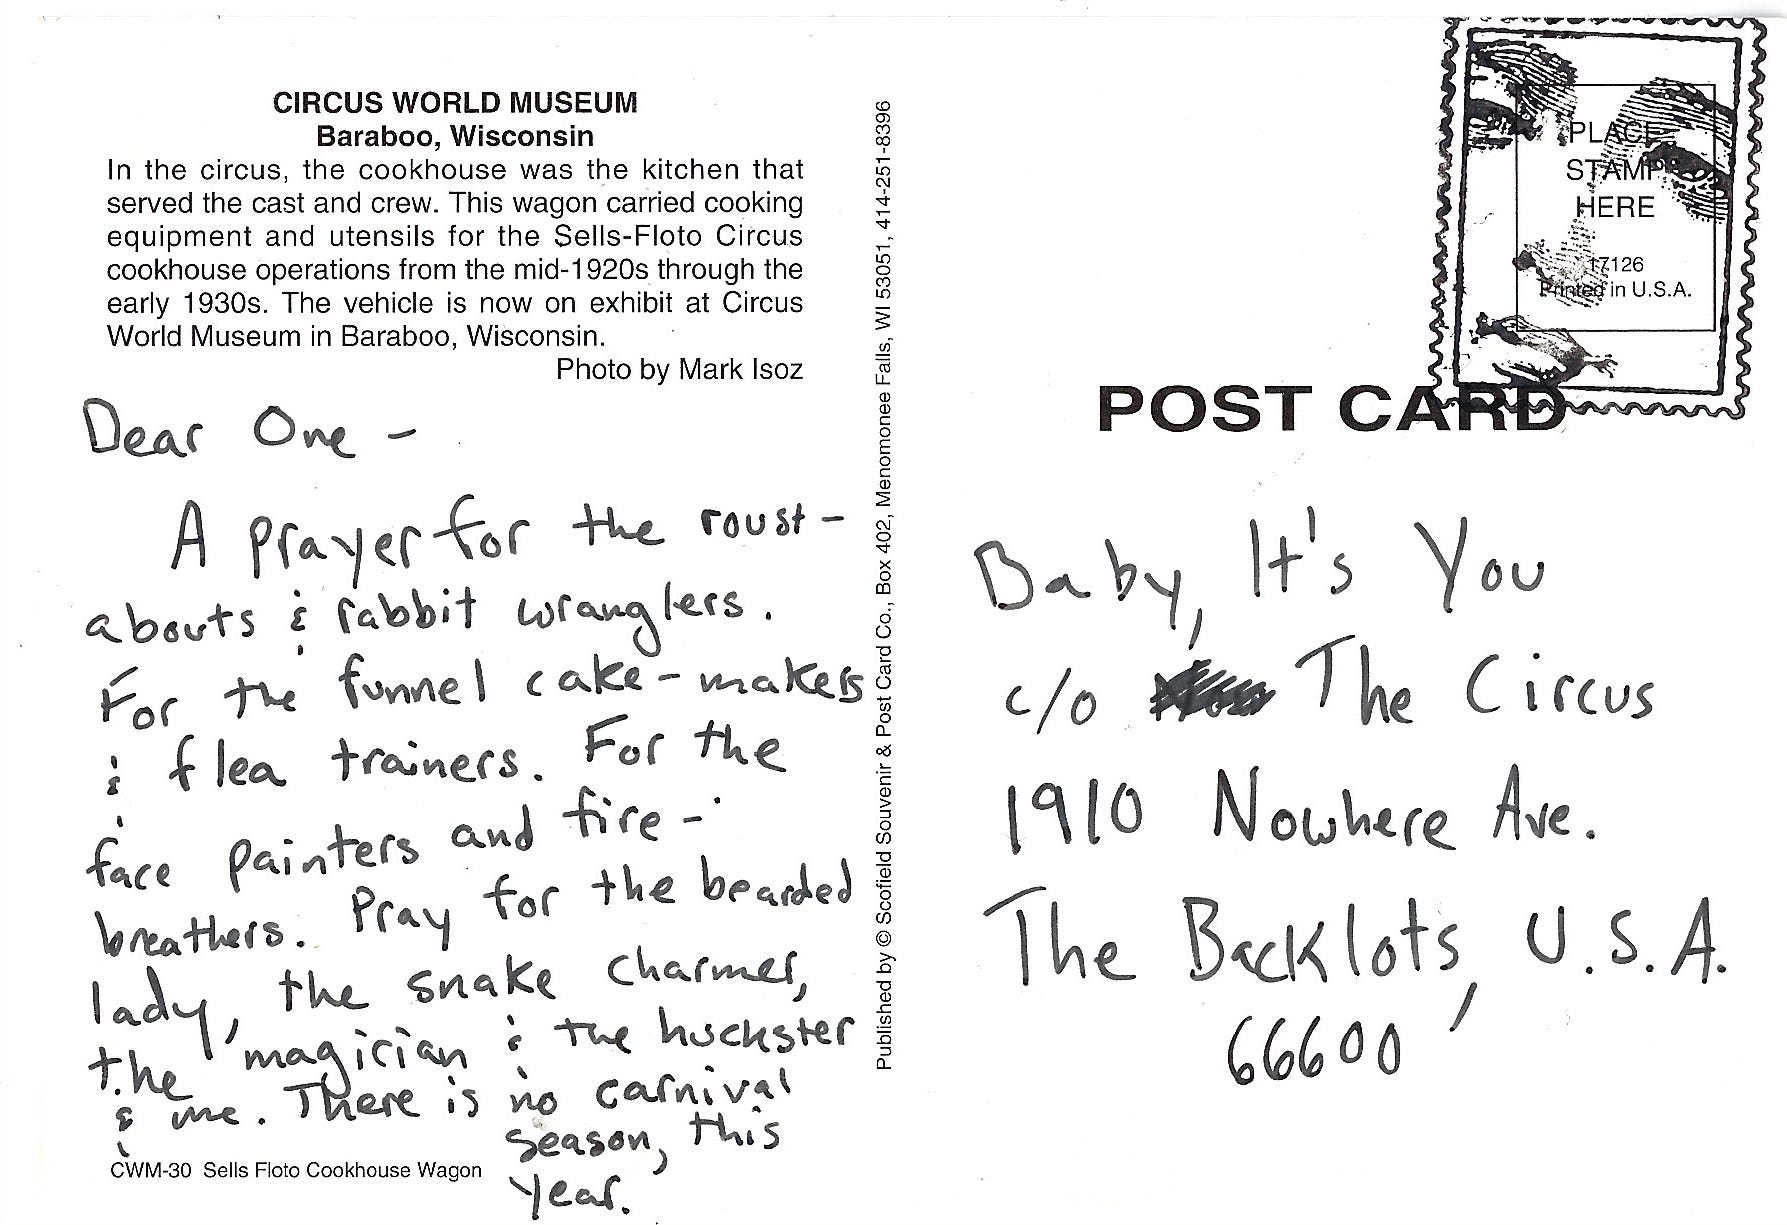 CIRCUS WORLD MUSEUM
Baraboo, Wisconsin
In the circus, the cookhouse was the kitchen that
served the cast and crew. This wagon carried cooking
equipment and utensils for the Sells-Floto Circus
cookhouse operations from the mid-1920s through the
early 1930s. The vehicle is now on exhibit at Circus
World Museum in Baraboo, Wisconsin.
Photo by Mark Isoz
Dear One -
A prayer for the roust-
abouts & rabbit wranglers.
For the funnel cake-makers
& flea trainers. For the
face painters and fire-
breathers. Pray for the bearded
lady, the snake charmer,
the magician & the huckster
& me. There is no carnival
season, this
year.
CWM-30 Sells Floto Cookhouse Wagon
Published by © Scofield Souvenir & Post Card Co., Box 402, Menomonee Falls, WI 53051, 414-251-8396
PLACE
STAMP
HERE
17126
Printed in U.S.A.
POST CARD
Baby, It's You
c/o The Circus
1910 Nowhere Ave.
The Backlots, U.S.A.
66600